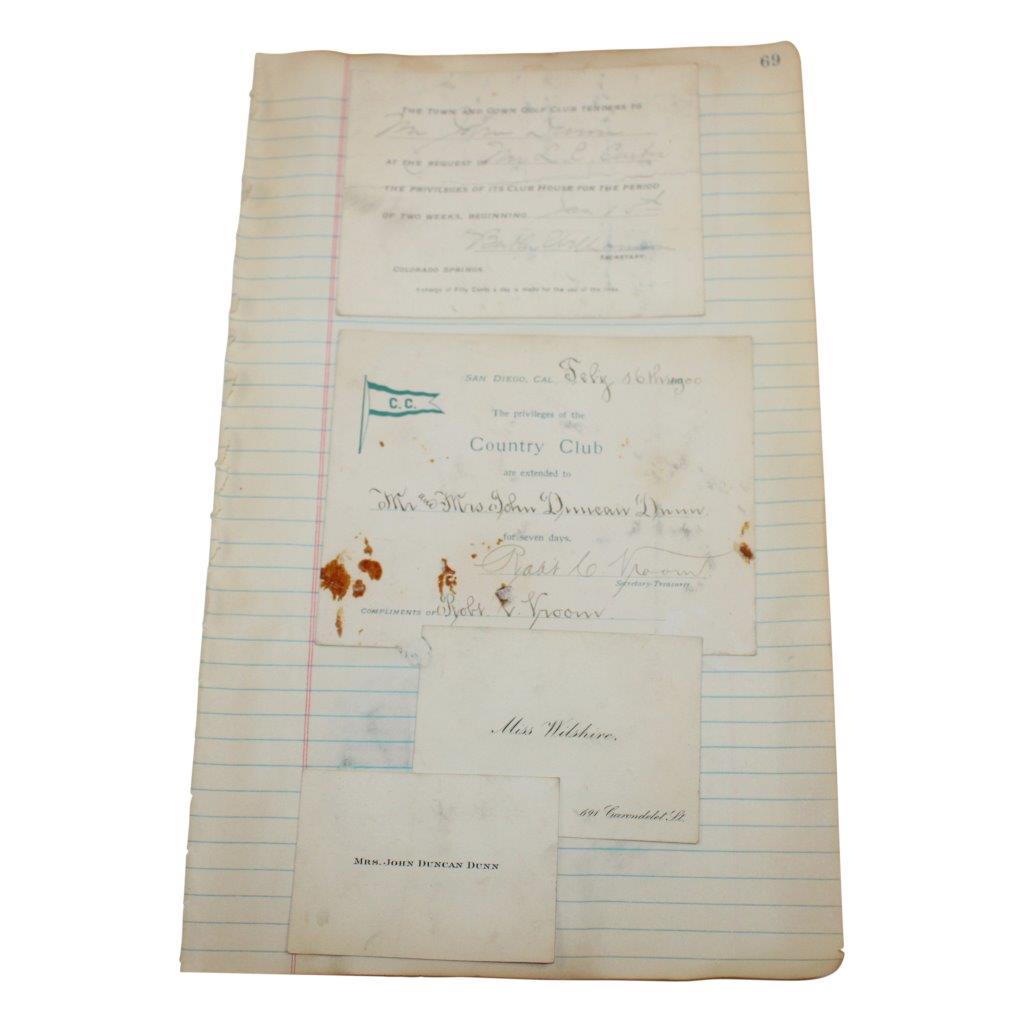 69
THE TOWN AND GOWN GOLF CLUB TENDERS TO
Mr John Dunn
AT THE REQUEST OF Mr L. C.
THE PRIVILEGES OF ITS CLUB HOUSE FOR THE PERIOD
OF TWO WEEKS, BEGINNING Jan
SECRETARY.
COLORADO SPRINGS.
A charge of Fifty Cents a day is made for the use of the links.
SAN DIEGO, CAL. Feby 16th 1900
C.C.
The privileges of the
Country Club
are extended to
Mr and Mrs John Duncan Dunn
for seven days.
Robt C Vroom
Secretary-Treasurer
COMPLIMENTS OF Robt. C. Vroom.
Miss Wilshire.
691 Carondelet St.
MRS. JOHN DUNCAN DUNN